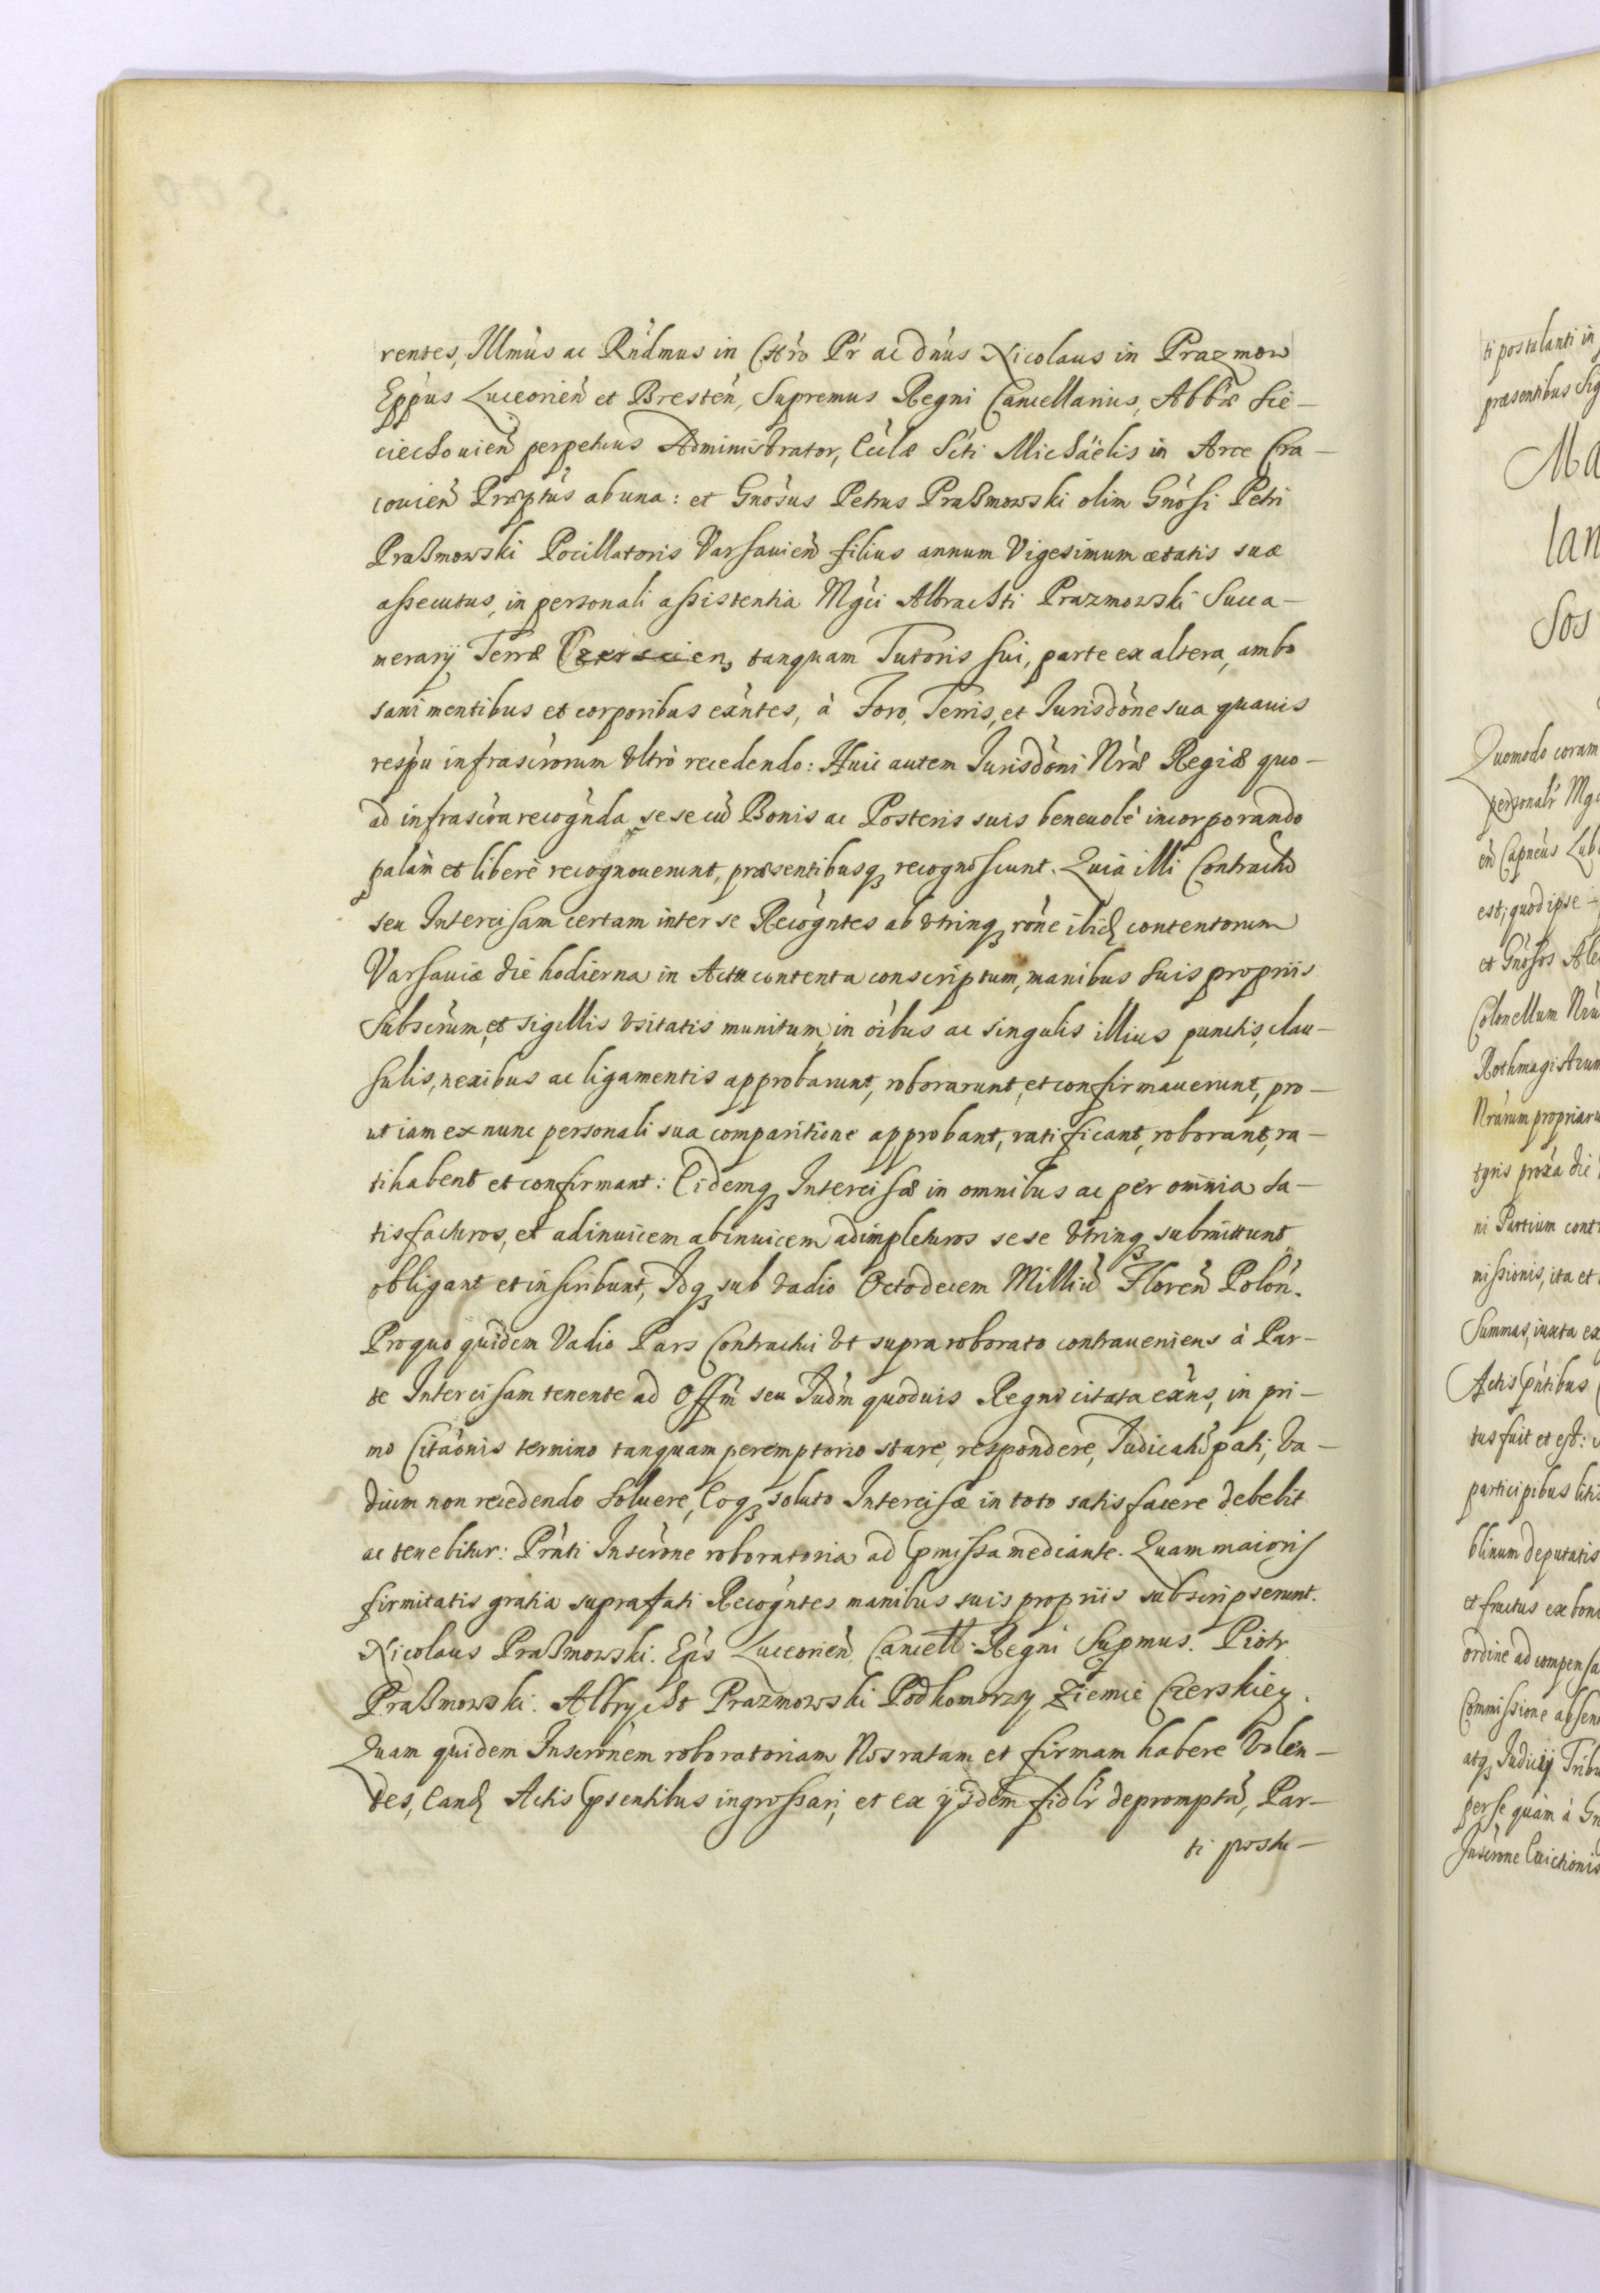 rentes, Illmus ac Rndmus in Chro Pr ac dnus Nicolaus in Prazmow
Eppus Luceorien et Bresten, Supremus Regni Cancellarius, Abbæ Sie-
ciechouien perpetuus Administrator, Eclæ Scti Michäelis in Arce Cra-
couien Præptus ab una: et Gnosus Petrus Praßmowski olim Gnosi Petri
Praßmowski Pocillatoris Varsauien filius annum Vigesimum ætatis suæ
assecutus, in personali assistentia Mgci Albrachti Prazmowski Succa-
merarij Terræ Czerscien, tanquam Tutoris sui, parte ex altera, ambo
sani mentibus et corporibus exntes, à Foro, Terris, et Jurisdone sua quauis
respu infrascrorum Vltrò recedendo: Huic autem Jurisdoni Nræ Regiæ quo-
ad infrascra recognda se se cũ Bonis ac Posteris suis beneuolè incorporando
palàm et liberè recognouerunt, præsentibusq recognoscunt. Quia illi Contractũ
seu Intercisam certam inter se Recogntes ab vtrinq rõne ibid contentorum
Varsauiæ die hodierna in Actu contenta conscriptum, manibus suis propriis
Subscrum, et sigillis vsitatis munitum, in oibus ac singulis illius punctis, clau-
sulis, nexibus ac ligamentis approbarunt, roborarunt, et confirmauerunt, pro-
ut iam ex nunc personali sua comparitione approbant, ratificant, roborant, ra-
tihabent et confirmant: Eidemq Intercisæ in omnibus ac per omnia sa-
tisfacturos, et adinuicem abinuicem adimpleturos sese Vtrinq submittunt
obligant et inscribunt, Idq sub vadio Octodecem Milliũ Floren Polon.
Pro quo quidem Vadio Pars Contractui Vt supra roborato contraueniens à Par-
te Intercisam tenente ad Offm seu Judm quoduis Regni citata exns, in pri-
mo Citaonis termino tanquam peremptorio stare, respondere, Judicatũ pati, Va-
dium non recedendo soluere, Eoq soluto Intercisæ in toto satisfacere debebit
ac tenebitur: Prnti Inscrone roboratoria ad pmissa mediante. Quam maioris
firmitatis gratia suprafati Recogntes manibus suis propriis subscripserunt.
Nicolaus Praßmowski. Eps Luceorien, Cancell: Regni Supmus. Piotr
Praßmowski. Albrycht Prazmowski Podkomorzy Ziemie Czerskiey.
Quam quidem Inscronem roboratoriam Nos ratam et firmam habere Volen-
tes, Eand Actis psentibus ingrossari, et ex ijsdem fidlr depromptã, Par-
ti postu-
ti postulanti in
præsentibus Sig
Ma
lan
Sos
Quomodo coram
personalr Mgc
en Capneus Lub
est; quod ipse
et Gnosos Ale
Colonellum Nru
Rothmagistrum
Nrarum propriaru
tgris proxa die
ni Partium cont
missionis, ita et
Summas, iuxta ex
Actis pntibus
tus fuit et est:
participibus litis
blinum deputatis
et fructus ex boni
ordine ad compensa
Commissione absen
atq Judicij Tribu
per se quàm à Gn
Inscrone Euictionis